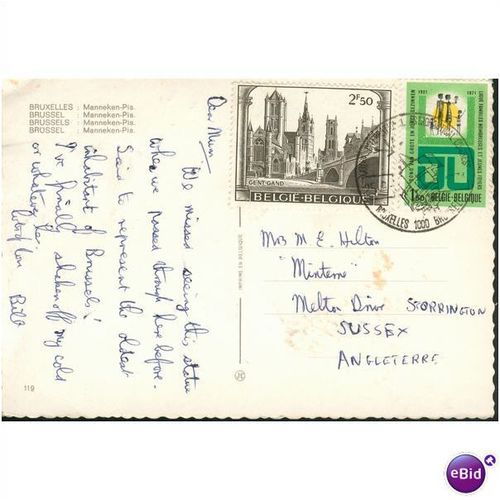 BRUXELLES : Manneken-Pis.
BRUSSEL : Manneken-Pis.
BRUSSELS : Manneken-Pis.
BRÜSSEL : Manneken-Pis.
Dear Mum,
We missed seeing this statue
when we passed through here before.
Said to represent the oldest
inhabitant of Brussels!
I've finally shaken off my cold
or whatever
Bill
119
2F50
GENT-GAND
BELGIE-BELGIQUE
1921
1971
1F50 BELGIE-BELGIQUE
BRUXELLES 1000
Mrs M. E. Hilton
"Minterne"
Melton Drive STORRINGTON
SUSSEX
ANGLETERRE
eBid